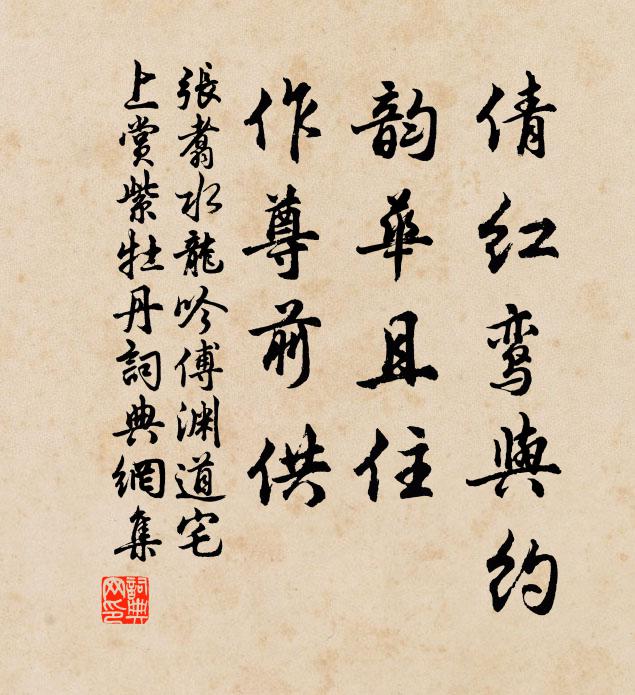 倩红鸾與约
韵華且住
作尊前供
張翥水龍吟傅渊道宅
上赏紫牡丹詞典網集
詞典网印